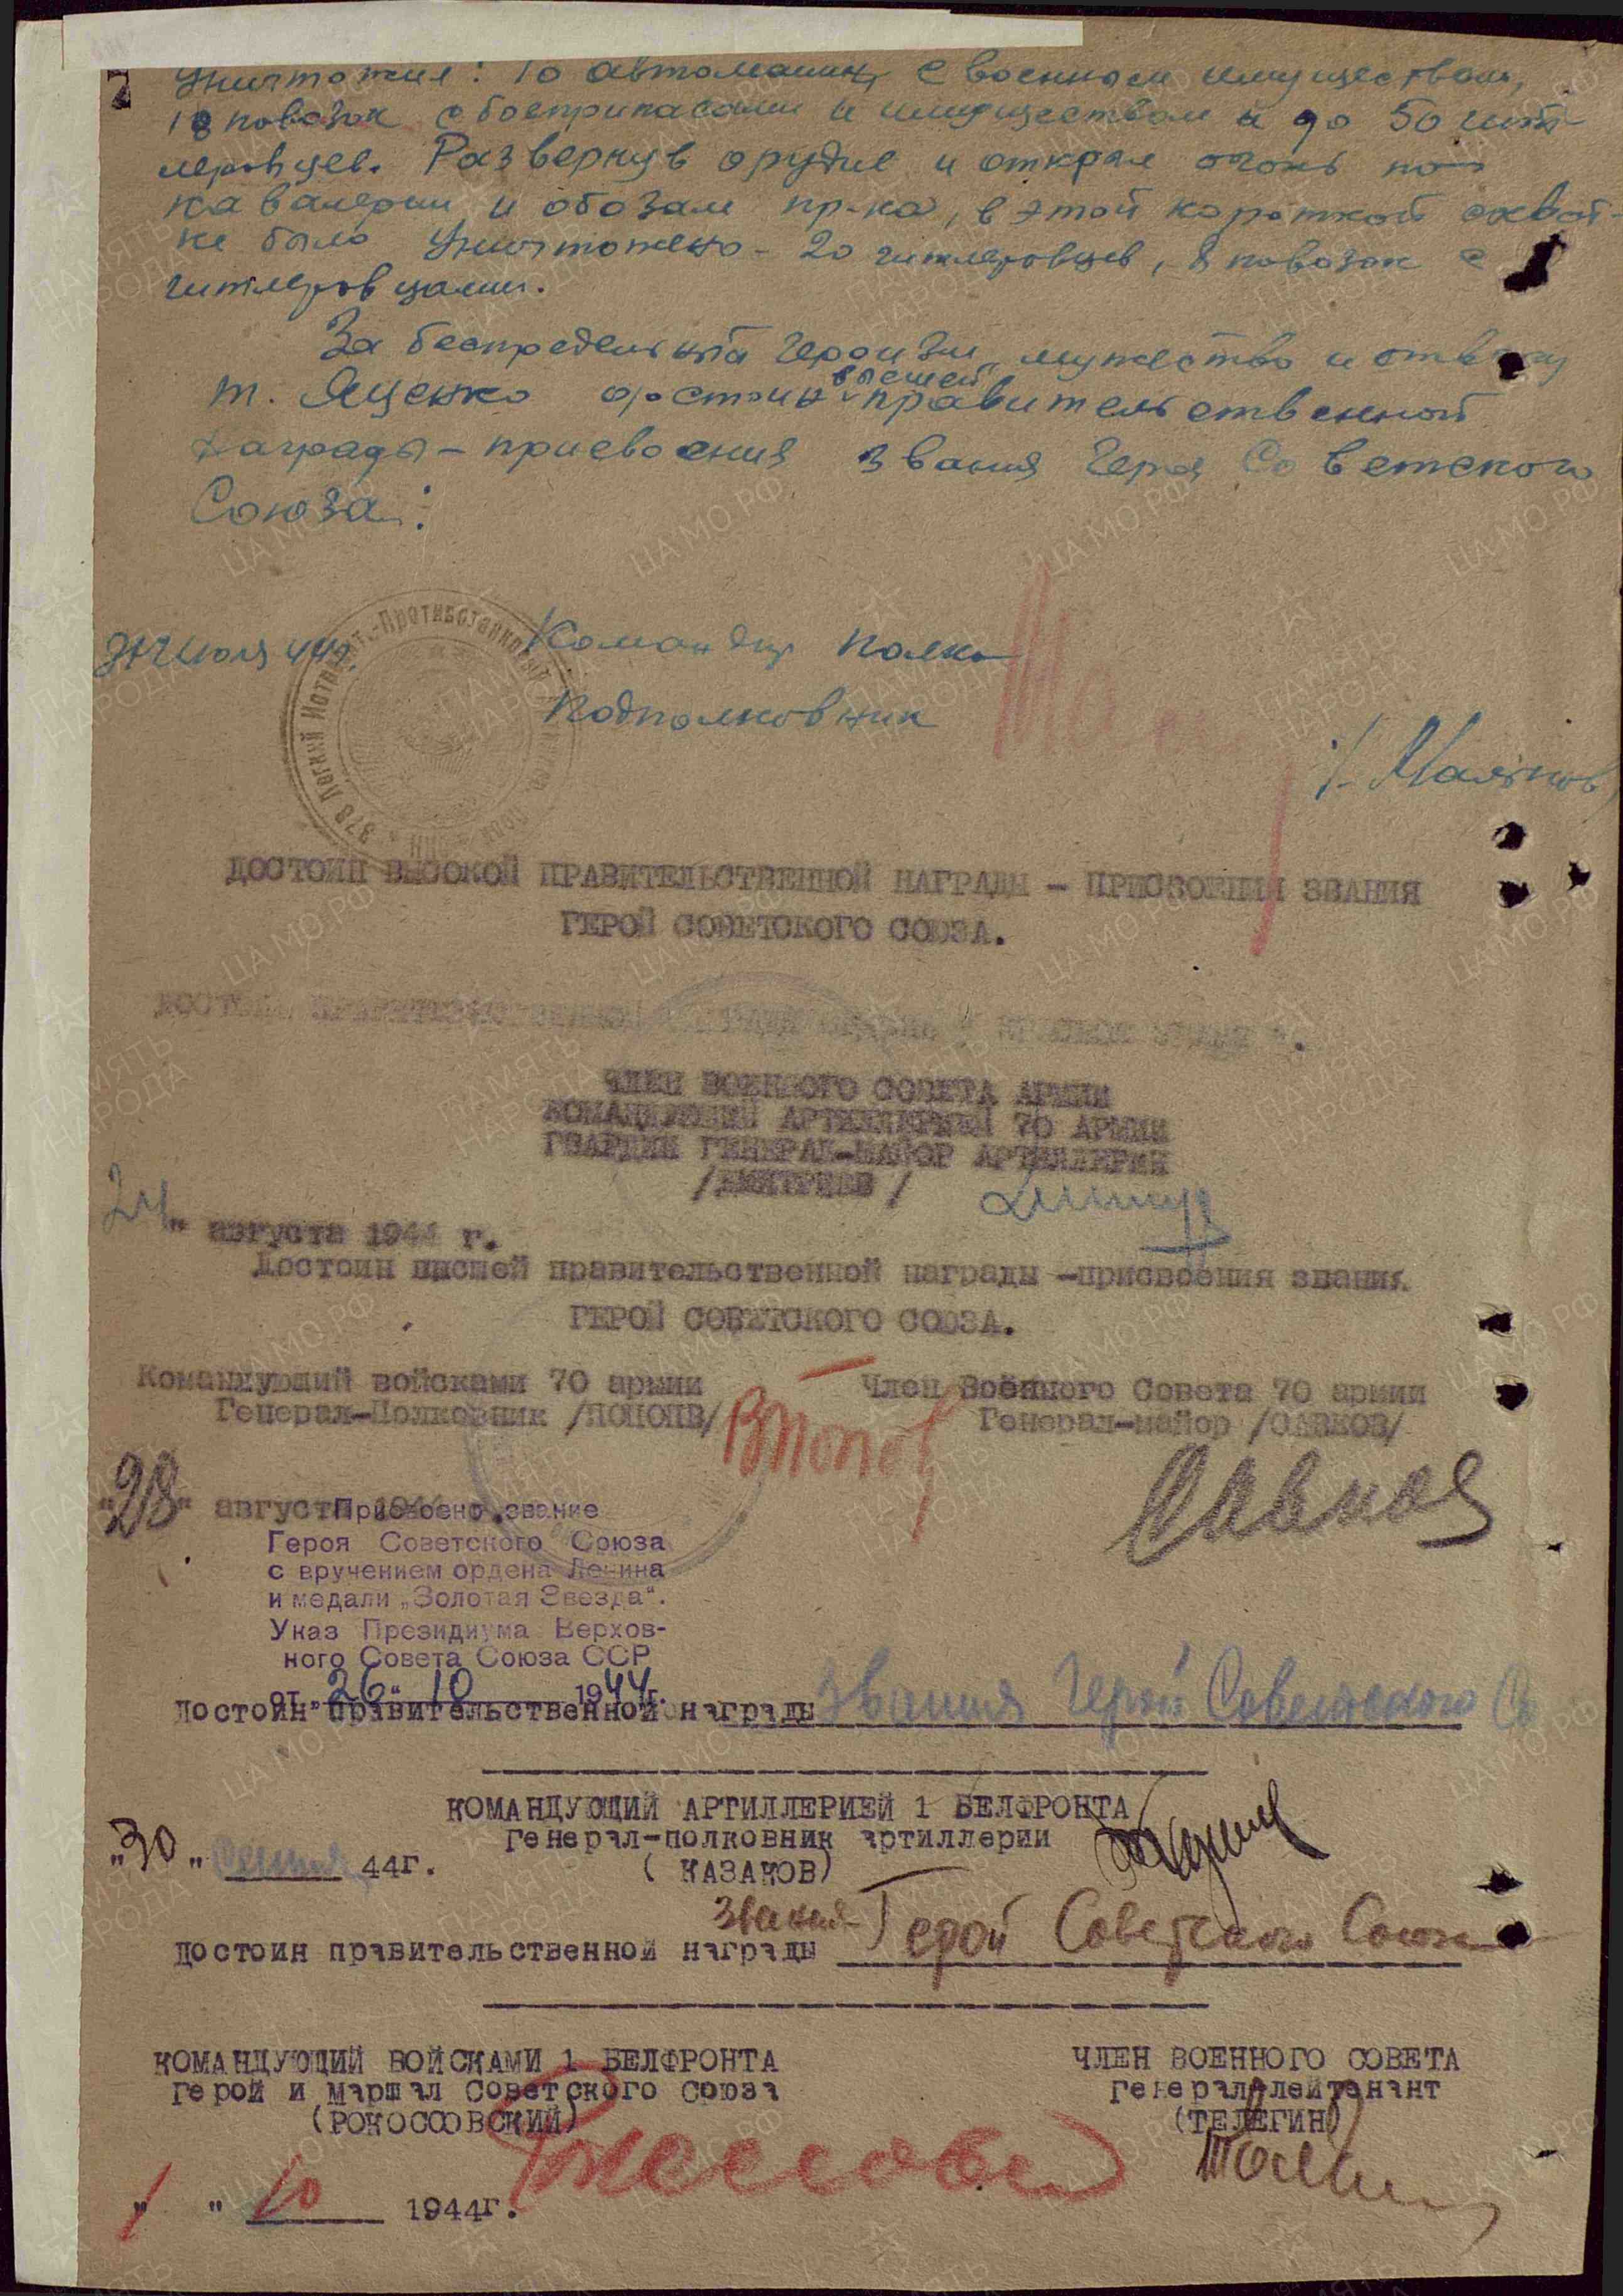 уничтожил: 10 автомашин, с военным имуществом,
18 повозок с боеприпасами и имуществом и до 50 гит-
леровцев. Развернув орудие и открыл огонь по
кавалерии и обозам пр-ка, в этой короткой схват-
ке было уничтожено - 20 гитлеровцев, 8 повозок с
гитлеровцами.
За беспредельный героизм, мужество и отвагу
т. Ященко достоин высшей правительственной
награды - присвоения звания Героя Советского
Союза.
июля 44г.
Командир полка
Подполковник
378 Легкий Истребит.-Противотанковый
Маликов
ДОСТОИН ВЫСОКОЙ ПРАВИТЕЛЬСТВЕННОЙ НАГРАДЫ - ПРИСВОЕНИЯ ЗВАНИЯ
ГЕРОЙ СОВЕТСКОГО СОЮЗА.
ЧЛЕН ВОЕННОГО СОВЕТА АРМИИ
КОМАНДУЮЩИЙ АРТИЛЛЕРИЕЙ 70 АРМИИ
ГВАРДИИ ГЕНЕРАЛ-МАЙОР АРТИЛЛЕРИИ
/ДМИТРИЕВ/
24" августа 1944 г.
Достоин высшей правительственной награды -присвоения звания
ГЕРОЙ СОВЕТСКОГО СОЮЗА.
Командующий войсками 70 армии
Генерал-Полковник /ПОПОВ/
ВПопов
Член Военного Совета 70 армии
Генерал-майор /САВКОВ/
Савков
"28" августа 1944
Присвоено звание
Героя Советского Союза
с вручением ордена Ленина
и медали „Золотая Звезда".
Указ Президиума Верхов-
ного Совета Союза ССР
от „26" 10 1944г.
достоин правительственной награды звания Герой Советского Со
КОМАНДУЮЩИЙ АРТИЛЛЕРИЕЙ 1 БЕЛФРОНТА
генерал-полковник артиллерии
( КАЗАКОВ)
"30" 44г.
достоин правительственной награды звания Герой Советского Союза
КОМАНДУЮЩИЙ ВОЙСКАМИ 1 БЕЛФРОНТА
герой и маршал советского союза
(РОКОССОВСКИЙ)
ЧЛЕН ВОЕННОГО СОВЕТА
генерал-лейтенант
(ТЕЛЕГИН)
1 " 10 1944г.
ПАМЯТЬ НАРОДА
ЦА МО РФ